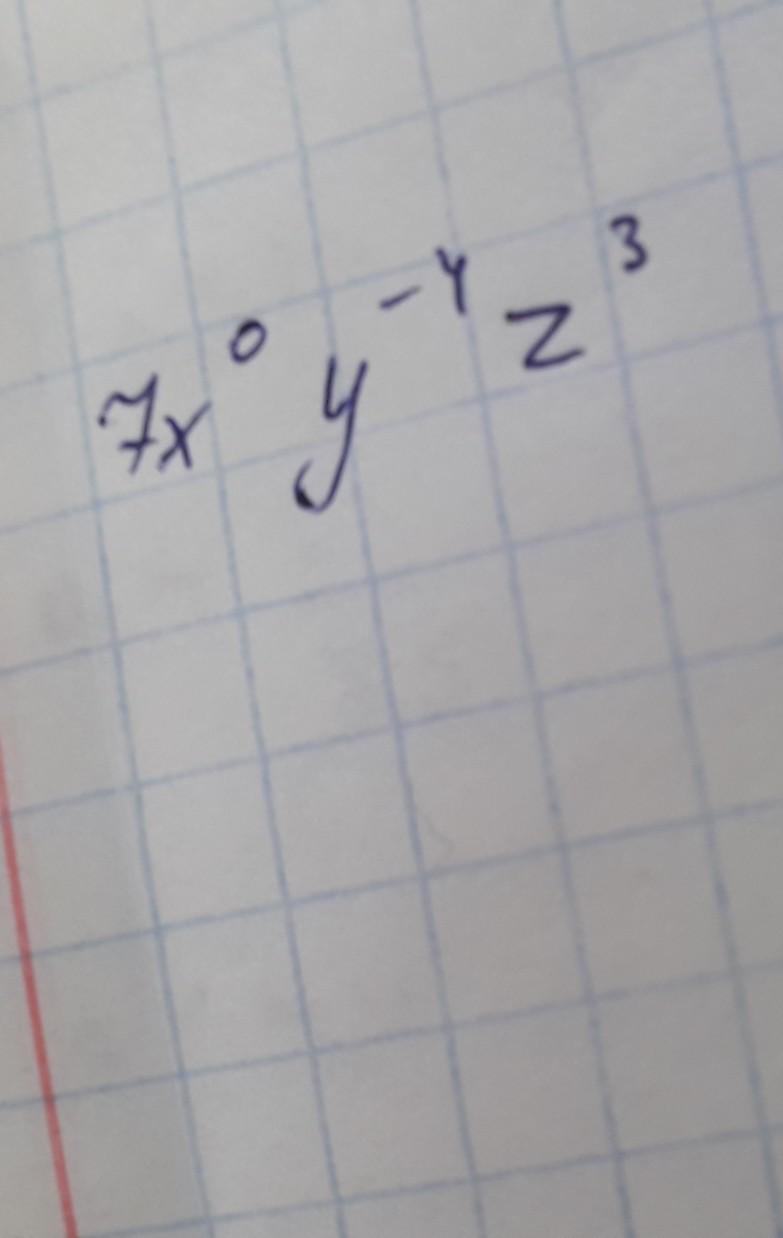 7x⁰ y⁻⁴ z³